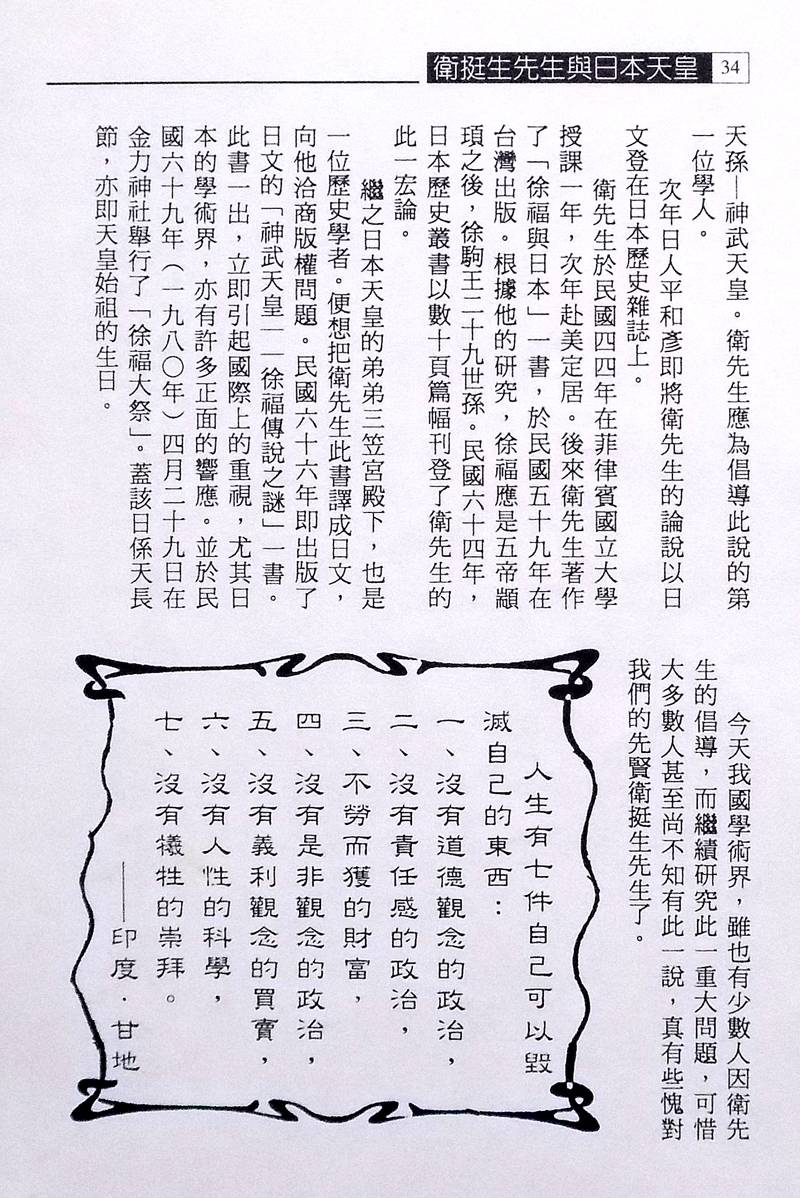 衛挺生先生與日本天皇 34
天孫—神武天皇。衛先生應為倡導此說的第
一位學人。
次年日人平和彥即將衛先生的論說以日
文登在日本歷史雜誌上。
衛先生於民國四四年在菲律賓國立大學
授課一年，次年赴美定居。後來衛先生著作
了「徐福與日本」一書，於民國五十九年在
台灣出版。根據他的研究，徐福應是五帝顓
頊之後，徐駒王二十九世孫。民國六十四年，
日本歷史叢書以數十頁篇幅刊登了衛先生的
此一宏論。
繼之日本天皇的弟弟三笠宮殿下，也是
一位歷史學者。便想把衛先生此書譯成日文，
向他洽商版權問題。民國六十六年即出版了
日文的「神武天皇——徐福傳說之謎」一書。
此書一出，立即引起國際上的重視，尤其日
本的學術界，亦有許多正面的響應。並於民
國六十九年（一九八〇年）四月二十九日在
金力神社舉行了「徐福大祭」。蓋該日係天長
節，亦即天皇始祖的生日。
今天我國學術界，雖也有少數人因衛先
生的倡導，而繼續研究此一重大問題，可惜
大多數人甚至尚不知有此一說，真有些愧對
我們的先賢衛挺生先生了。
人生有七件自己可以毀
滅自己的東西：
一、沒有道德觀念的政治，
二、沒有責任感的政治，
三、不勞而獲的財富，
四、沒有是非觀念的政治，
五、沒有義利觀念的買賣，
六、沒有人性的科學，
七、沒有犧牲的崇拜。
——印度．甘地